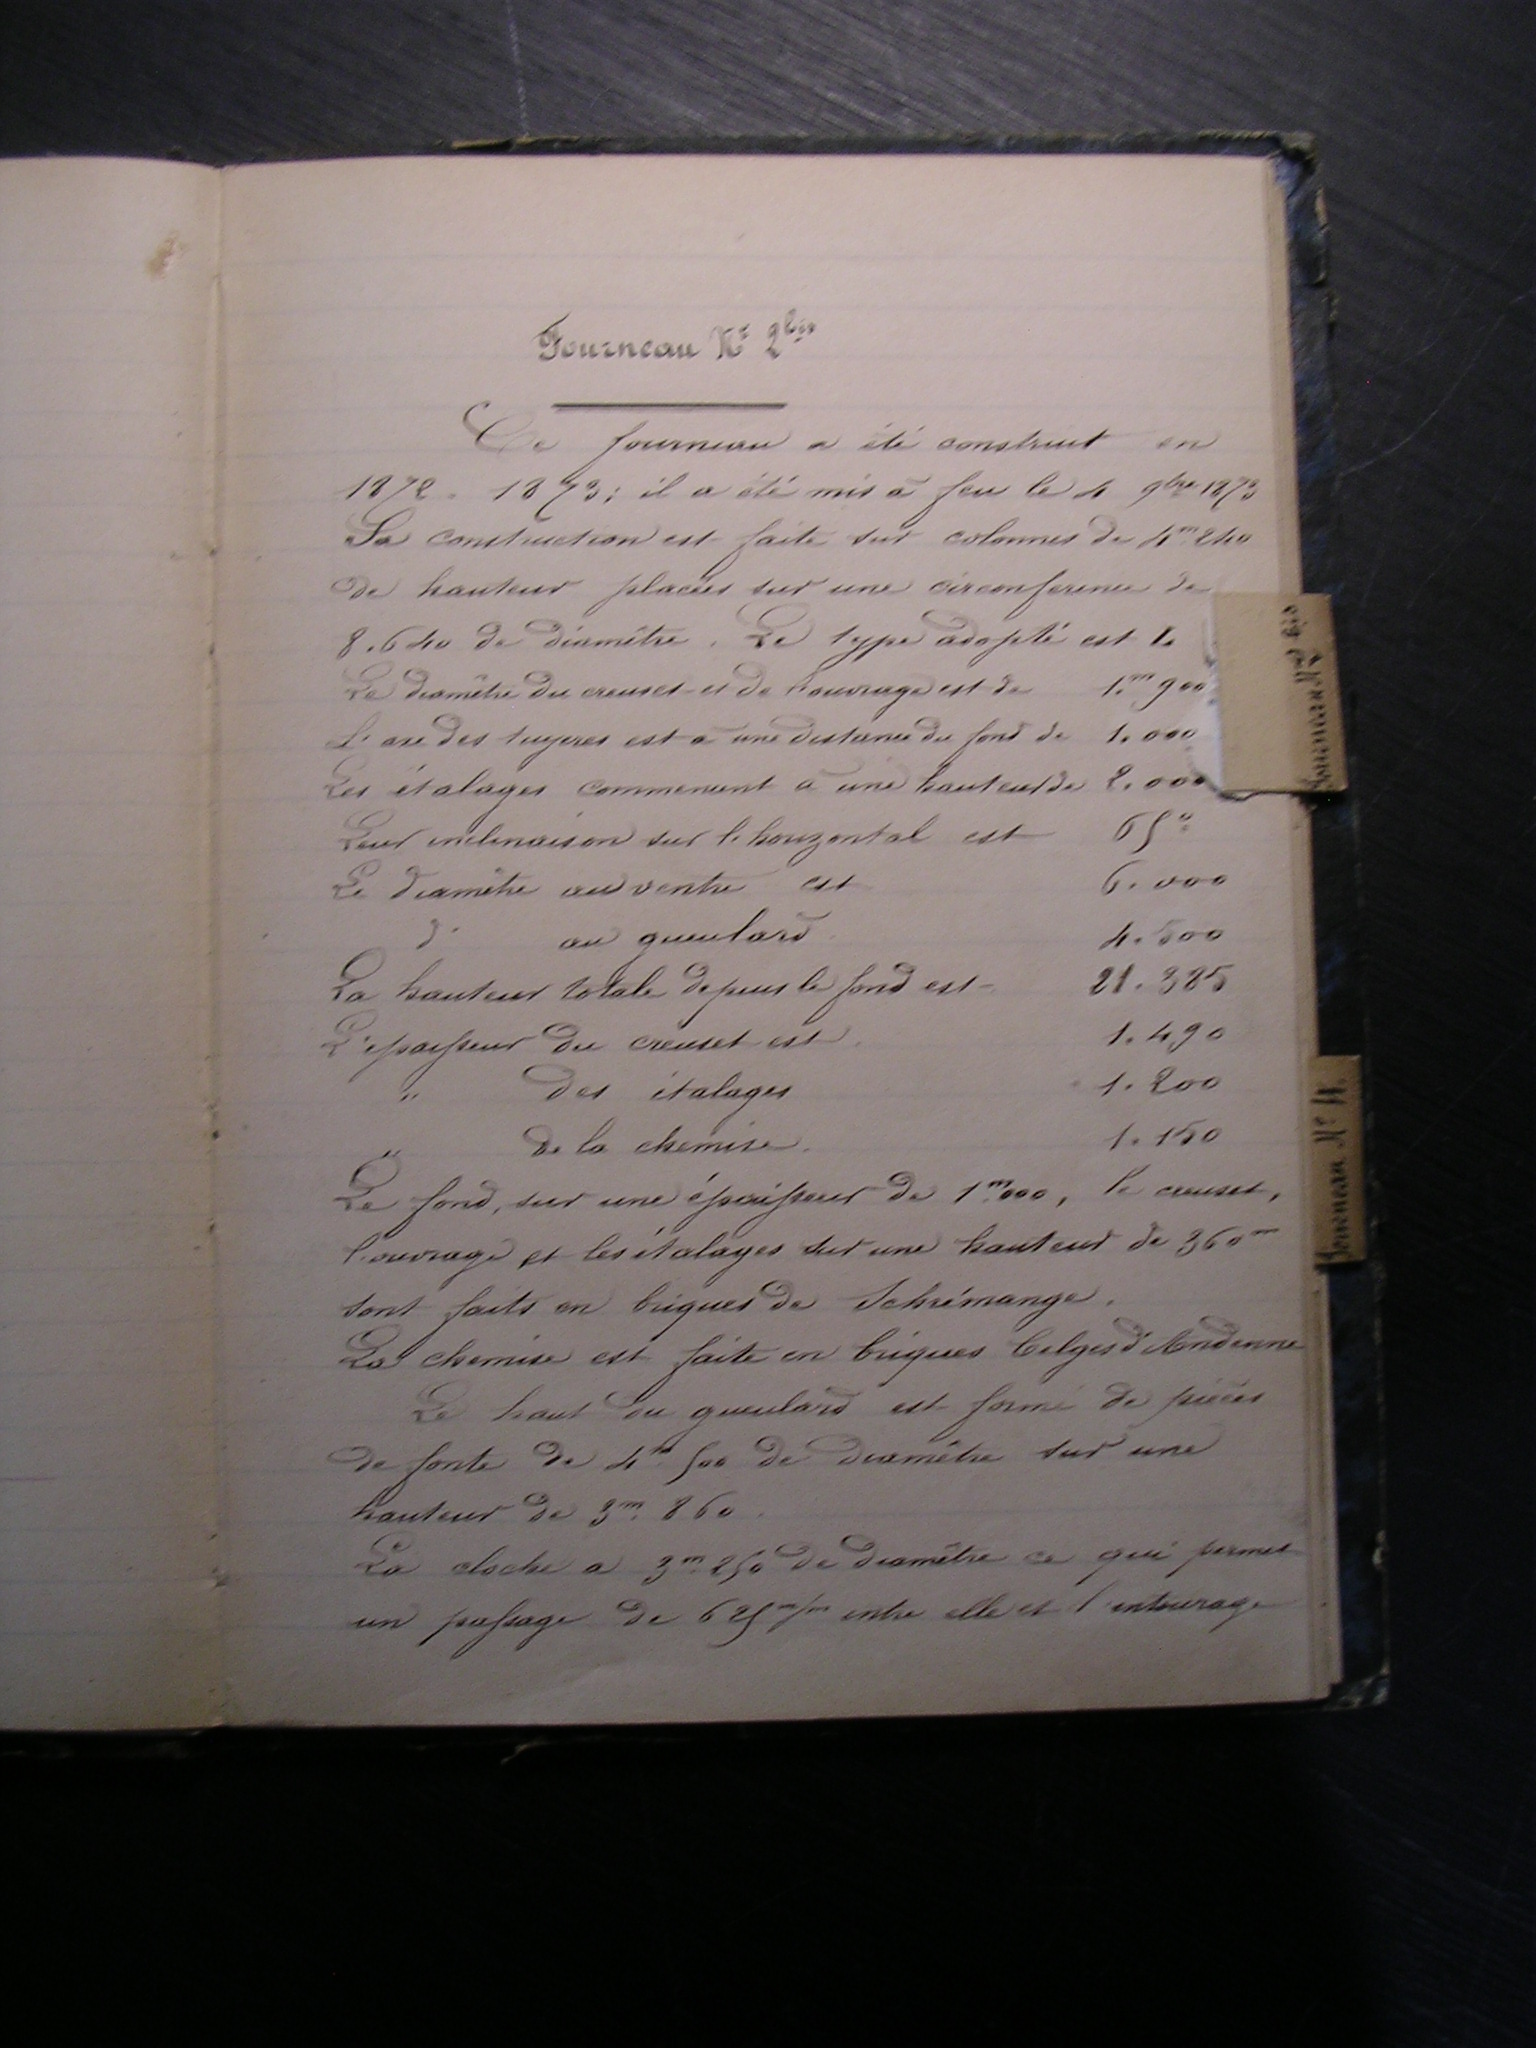 Fourneau N° 2bis
Ce fourneau a été construit en
1872. 1873; il a été mis à feu le 4 9bre 1873
Sa construction est faite sur colonnes de 4m.240
de hauteur placées sur une circonference de
8.640 de diamêtre. Le type adopté est 1.
Le diamêtre du creuset et de l'ouvrage est de 1.m900
L'axe des tuyeres est à une distance du fond de 1.000
Les étalages commencent à une hauteur de 2.000
Leur inclinaison sur l'horizontal est 65°
Le diamêtre au ventre est 6.000
d° au gueulard 4.500
La hauteur totale depuis le fond est 21.385
L'epaisseur du creuset est. 1.490
" des étalages 1.200
" de la chemise. 1.150
Le fond, sur une épaisseur de 1m.000, le creuset,
l'ouvrage et les étalages sur une hauteur de 360m
sont faits en briques de Schrémange.
La chemise est faite en briques belges d'Andenne
Le haut du gueulard est formé de pièces
de fonte de 4m.500 de diamêtre sur une
hauteur de 3m.860.
La cloche a 3m.250 de diamêtre ce qui permet
un passage de 625m/m entre elle et l'entourage
Fourneau N° 2 bis
Fourneau N° 4.